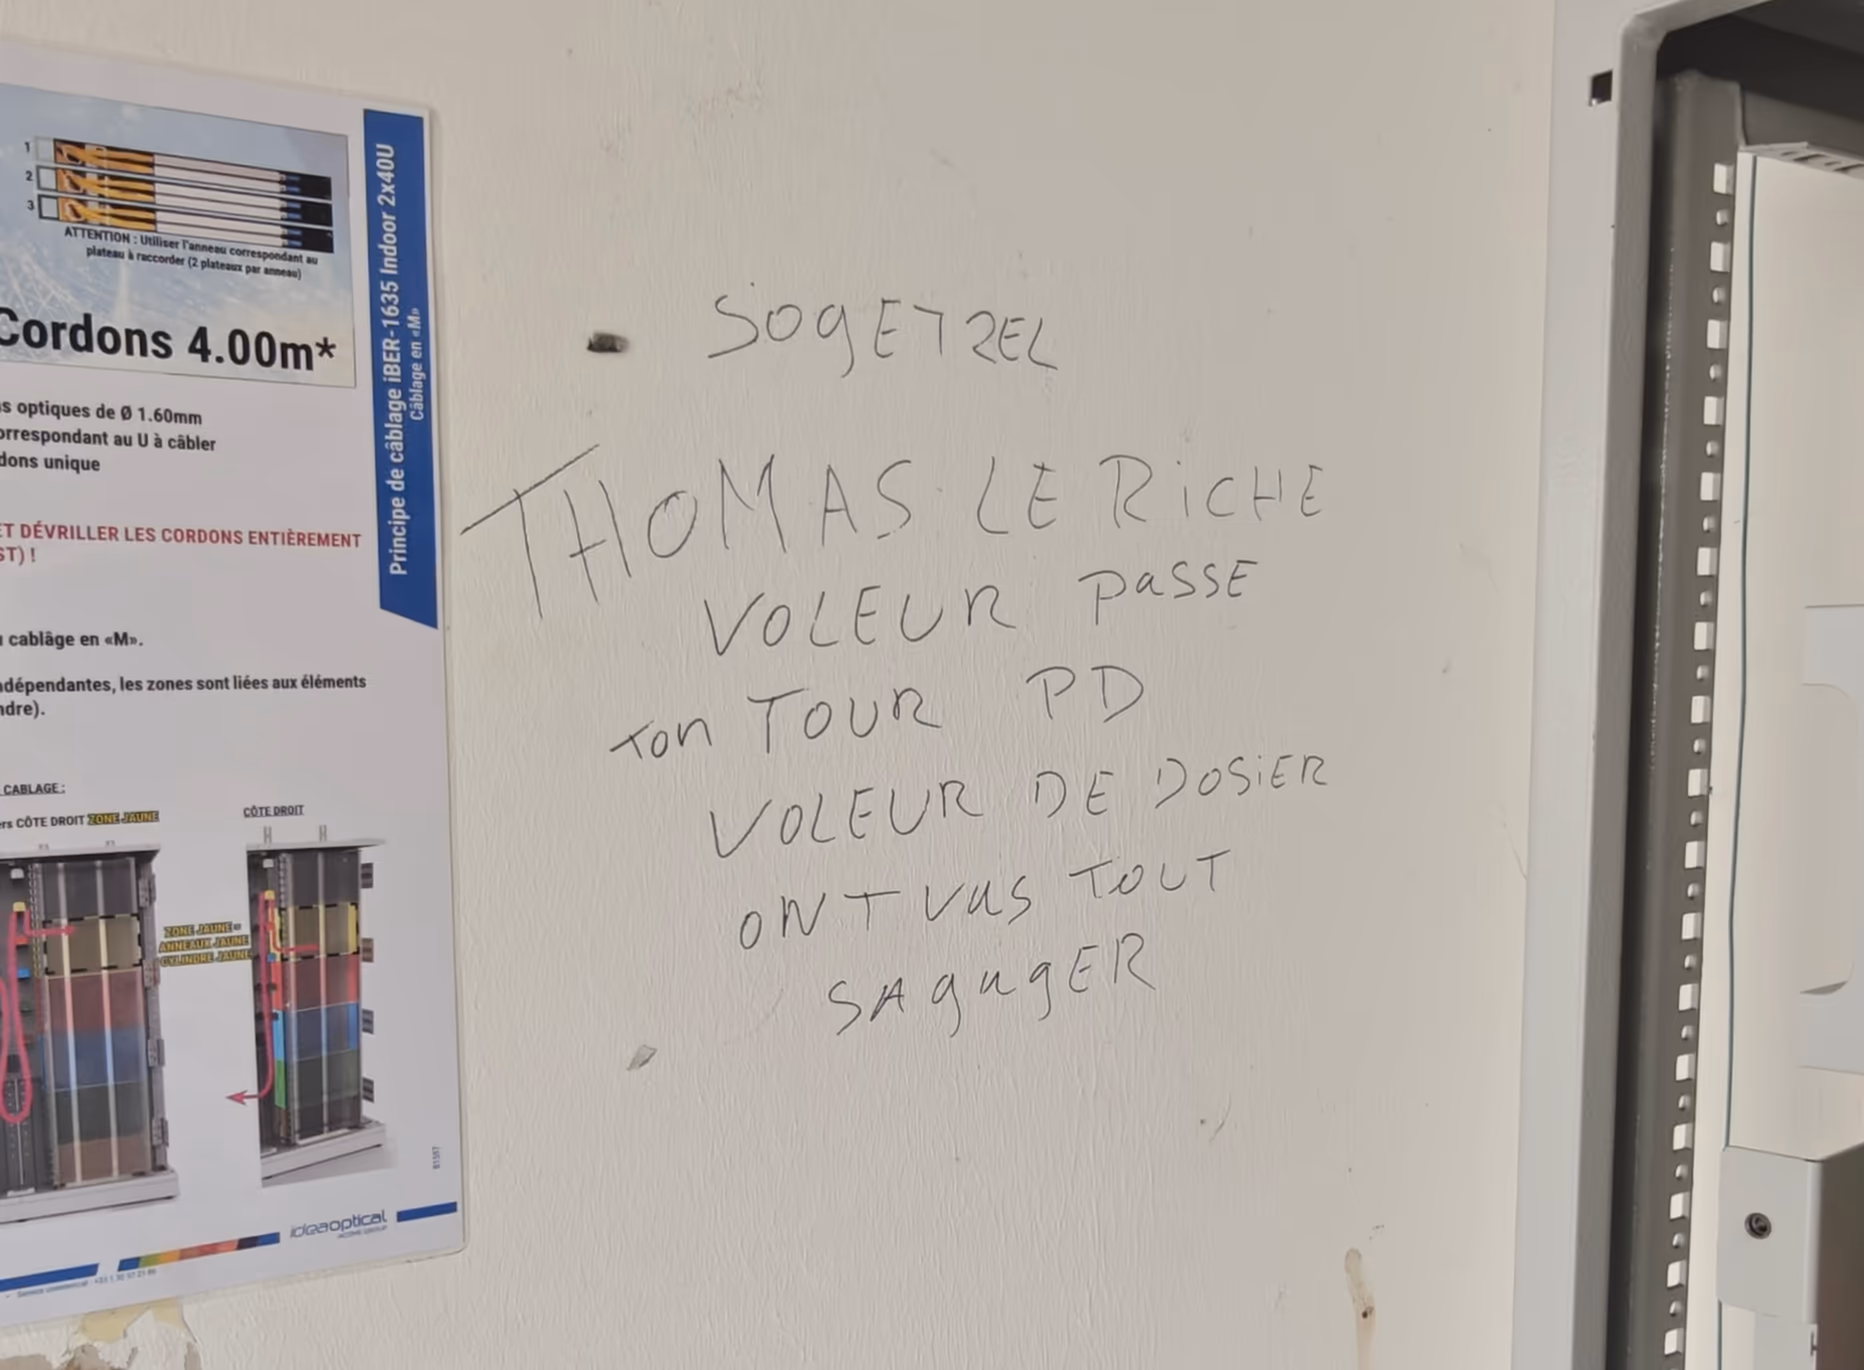 1
2
3
ATTENTION : Utiliser l'anneau correspondant au
plateau à raccorder (2 plateaux par anneau)
Cordons 4.00m*
s optiques de Ø 1.60mm
orrespondant au U à câbler
dons unique
ET DÉVRILLER LES CORDONS ENTIÈREMENT
ST) !
cablâge en «M».
ndépendantes, les zones sont liées aux éléments
ndre).
CABLAGE :
ers CÔTE DROIT ZONE JAUNE
CÔTE DROIT
ZONE JAUNE =
ANNEAUX JAUNE
CYLINDRE JAUNE
Principe de câblage iBER-1635 Indoor 2x40U
Câblage en «M»
ideaoptical
SOgETREL
THOMAS LE RiCHE
VOLEUR PaSSE
Ton TOUR PD
VOLEUR DE DOSiER
ONT VuS TOUT
SAgugER